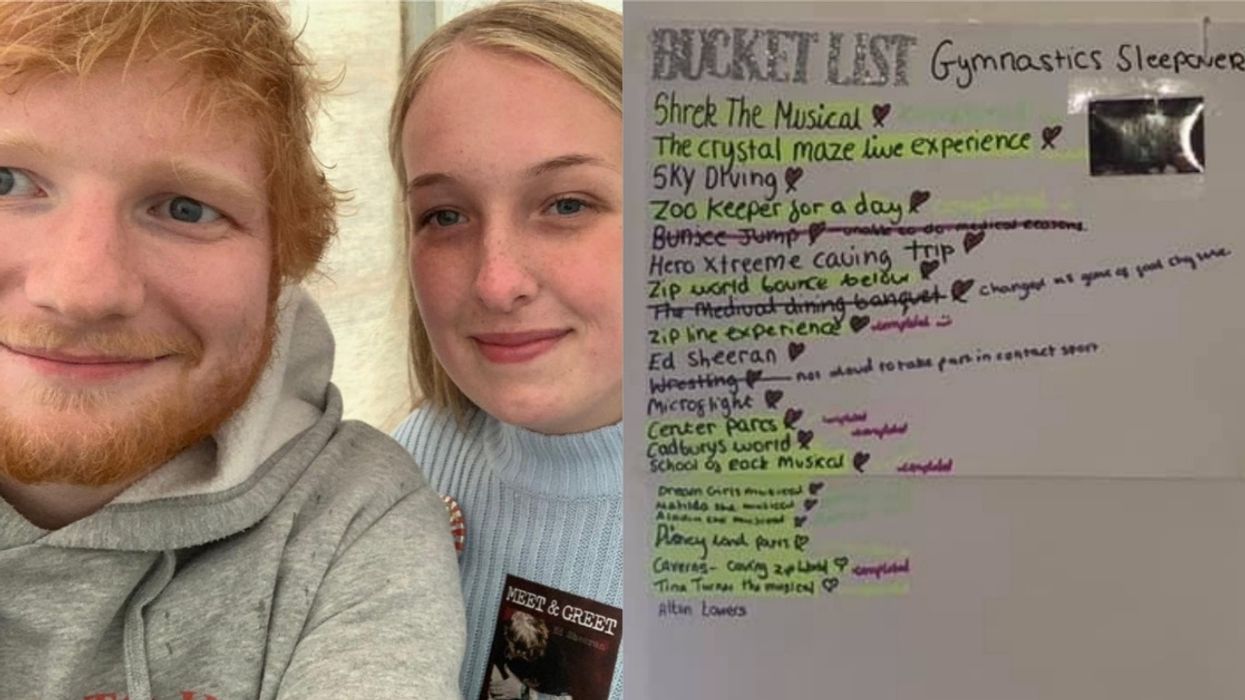 MEET & GREET
Ed Sheeran
BUCKET LIST Gymnastics Sleepover
Shrek The Musical
The crystal maze live experience
Sky Diving
Zoo keeper for a day
Bunjee Jump - unable to do medical reasons
Hero xtreeme caving trip
Zip world bounce below
The Medival dining banquet changed as game of
Zip line experience completed
Ed Sheeran
Wrestling - not aloud to take part in contact sport
Microflight
Center parcs completed
Cadburys world completed
School of Rock Musical completed
Dream Girls musical
Matilda the musical
Aladin the musical
Disney land paris
Caverns - caving zip world completed
Tina Turner the musical
Alton Towers